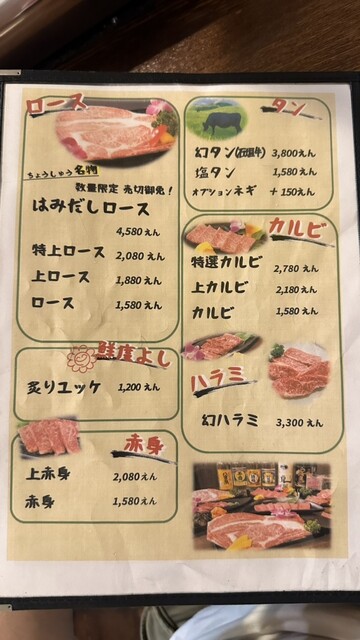 ロース
ちょうしゅう名物
数量限定 売切御免！
はみだしロース
4,580えん
特上ロース 2,080えん
上ロース 1,880えん
ロース 1,580えん
鮮度よし
炙りユッケ 1,200えん
赤身
上赤身 2,080えん
赤身 1,580えん
タン
幻タン(石垣牛) 3,800えん
塩タン 1,580えん
オプションネギ +150えん
カルビ
特選カルビ 2,780えん
上カルビ 2,180えん
カルビ 1,580えん
ハラミ
幻ハラミ 3,300えん